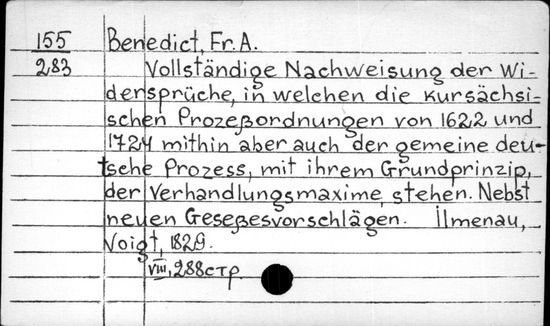 155 Benedict, Fr. A.
283 Vollständige Nachweisung der Wi-
dersprüche, in welchen die kursächsi-
schen Prozeßordnungen von 1622 und
1724 mithin aber auch der gemeine deu-
tsche Prozess, mit ihrem Grundprinzip,
der Verhandlungsmaxime, stehen. Nebst
neuen Geseßesvorschlägen. Ilmenau,
Voigt, 1829.
VIII, 288стр